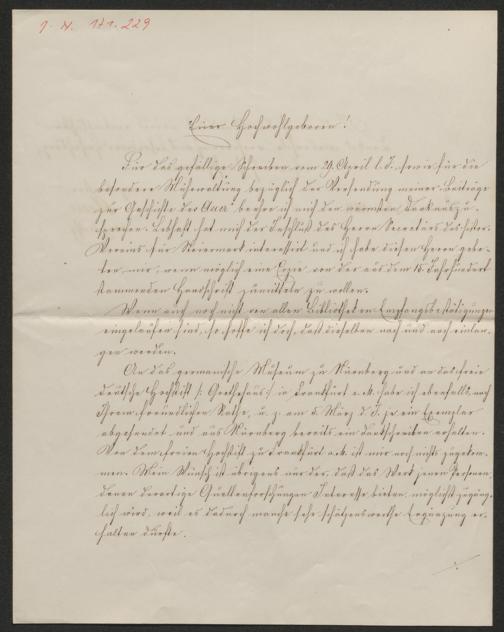 J. N. 171.229
Euer Hochwohlgeboren!
Für das gefällige Schreiben vom 29. April l. J. sowie für die
besondere Mühewaltung bezüglich der Versendung meiner „Beiträge
zur Geschichte der Aua“ beehre ich mich den wärmsten Dank auszu-
sprechen. Lebhaft hat mich der des Herrn Secretärs des histor.
Vereins für Steiermark interessirt und ich habe diesen Herrn gebe-
ten, mir, wenn möglich eine Copie von der aus dem 16. Jahrhundert
stammenden Handschrift zumitteln zu wollen.
Wenn auch noch nicht von allen Bibliotheken Empfangsbestätigungen
eingelaufen sind, so hoffe ich doch, daß dieselben nach und nach einlan-
gen werden.
An das germanische Museum zu Nürnberg und an das freie
deutsche Hochstift /: Goethehaus :/ in Frankfurt a. M. habe ich ebenfalls nach
Ihrem freundlichen Rathe, u. z. am 5. März d. J. je ein Exemplar
abgesendet und aus Nürnberg bereits ein Dankschreiben erhalten.
Von dem freien Hochstift zu Frankfurt a. M. ist mir noch nichts zugekom-
men. Mein Wunsch ist übrigens nur der, daß das Werk jenen Personen,
denen derartige Quellenforschungen Interesse bieten, möglichst zugäng-
lich wird, weil es dadurch manche sehr schätzenswerthe Ergänzung er-
halten dürfte.